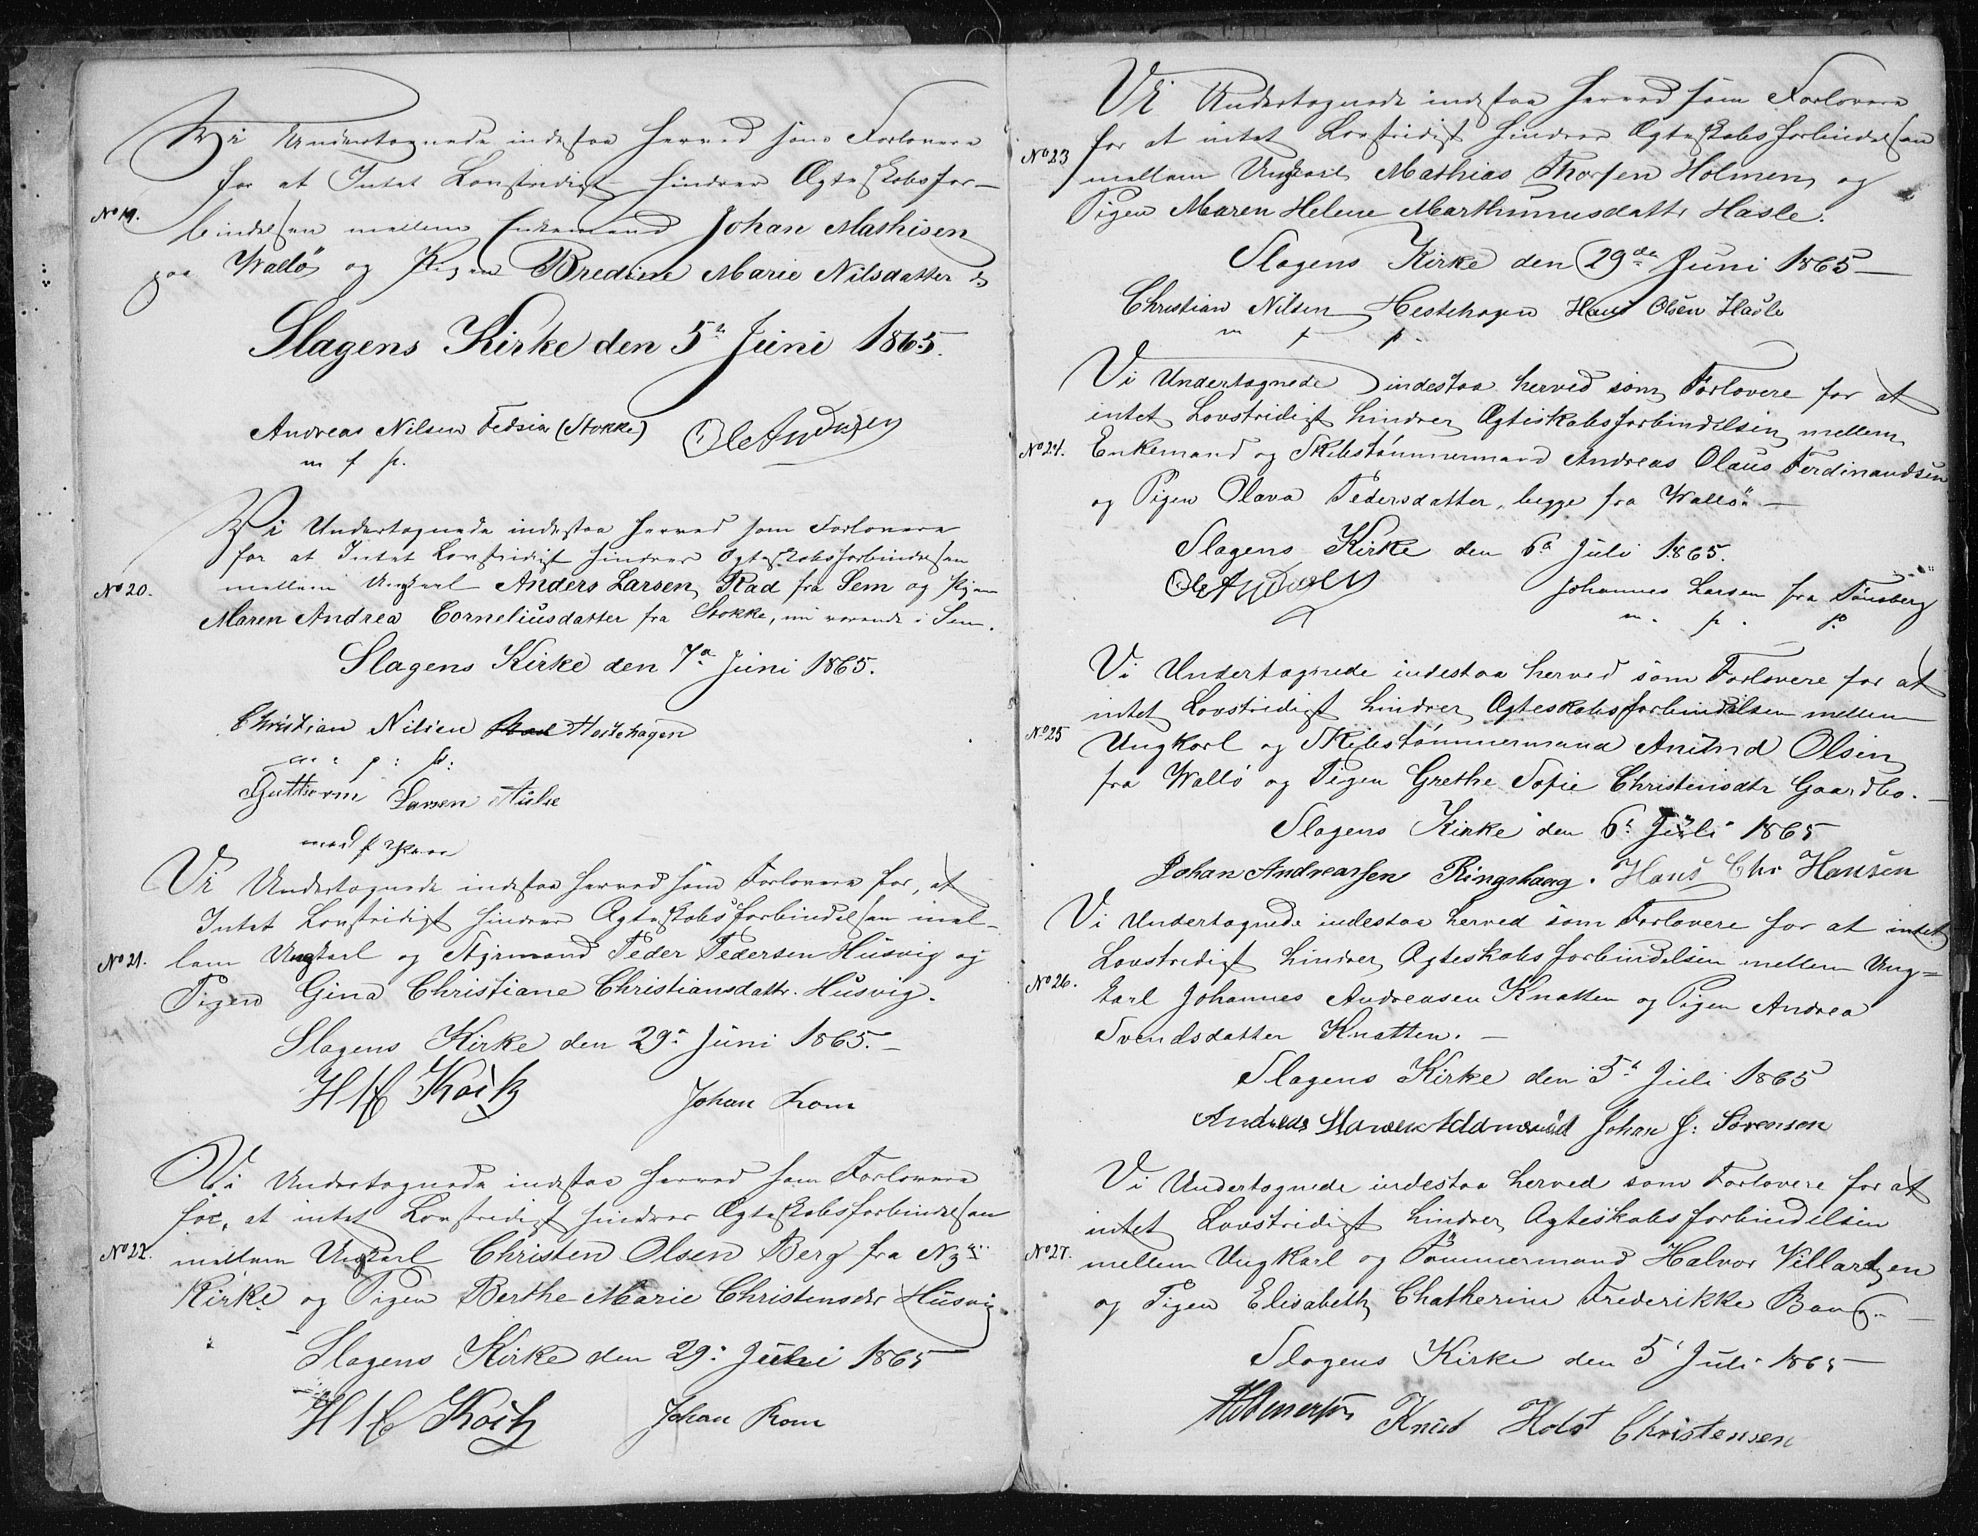 Vi Undertegnede indestaa herved som Forlovere
for at Intet Lovstridigt hindrer Ægteskabsfor-
No 19. bindelsen mellem Enkemand Johan Mathisen
paa Vallø og Pigen Bredine Marie Nilsdatter ds
Slagens Kirke den 5te Juni 1865.
Andreas Nilsen (Stokke) Ole Andersen
m f p.
Vi Undertegnede indestaa herved som Forlovere
for at Intet Lovstridigt hindrer Ægteskabsforbindelsen
No 20. mellem Ungkarl Anders Larsen Rad fra Sem og Pigen
Maren Andrea Corneliusdatter fra Stokke, nu værende i Sem.
Slagens Kirke den 7de Juni 1865.
Christian Nilsen Hestehagen
m : p : p :
Guttorm Larsen Aulie
med f Pen
Vi Undertegnede indestaa herved som Forlovere for, at
Intet Lovstridigt hindrer Ægteskabsforbindelsen mel-
No 21. lem Ungkarl og Styrmand Peder Pedersen Husvig og
Pigen Gina Christiane Christiansdattr. Husvig.
Slagens Kirke den 29de Juni 1865. –
Johan Rom
Vi Undertegnede indestaa herved som Forlovere
for, at intet Lovstridigt hindrer Ægteskabsforbindelsen
No 22. mellem Ungkarl Christen Olsen Berg fra
Kirke og Pigen Berthe Marie Christensdtr Husvig.
Slagens Kirke den 29de Juni 1865
Johan Rom
Vi Undertegnede indestaa herved som Forlovere
for at intet Lovstridigt hindrer Ægteskabsforbindelsen
No 23 mellem Ungkarl Mathias Thorsen Holmen og
Pigen Maren Helene Marthinusdattr Hasle.
Slagens Kirke den 29de Juni 1865 –
Christian Nilsen Hestehagen Hans Olsen Hasle
m f p.
Vi Undertegnede indestaa herved som Forlovere for at
intet Lovstridigt hindrer Ægteskabsforbindelsen mellem
No 24. Enkemand og Skibstømmermand Andreas Olaus Ferdinandsen
og Pigen Olava Pedersdatter, begge fra Vallø –
Slagens Kirke den 6te Juli 1865.
Ole Andersen Johannes Larsen fra Tønsberg
m. p. p.
Vi Undertegnede indestaa herved som Forlovere for at
intet Lovstridigt hindrer Ægteskabsforbindelsen mellem
No 25 Ungkarl og Skibstømmermand Olsen
fra Vallø og Pigen Grethe Sofie Christensdtr Gaardbo. –
Slagens Kirke den 6te Juli 1865
Johan Andreassen Ringshaug. Hans Chr Hansen
Vi Undertegnede indestaa herved som Forlovere for at intet
Lovstridigt hindrer Ægteskabsforbindelsen mellem Ung=
No 26. karl Johannes Andreasen Knatten og Pigen Andrea
Svendsdatter Knatten. –
Slagens Kirke den 5te Juli 1865
Andreas Johan J: Sørensen
Vi Undertegnede indestaa herved som Forlovere for at
intet Lovstridigt hindrer Ægteskabsforbindelsen
No 27. mellem Ungkarl og Tømmermand Halvor Villartzen
og Pigen Elisabeth Chatherine Frederikke Bang. –
Slagens Kirke den 5te Juli 1865 –
Knud Holst Christensen